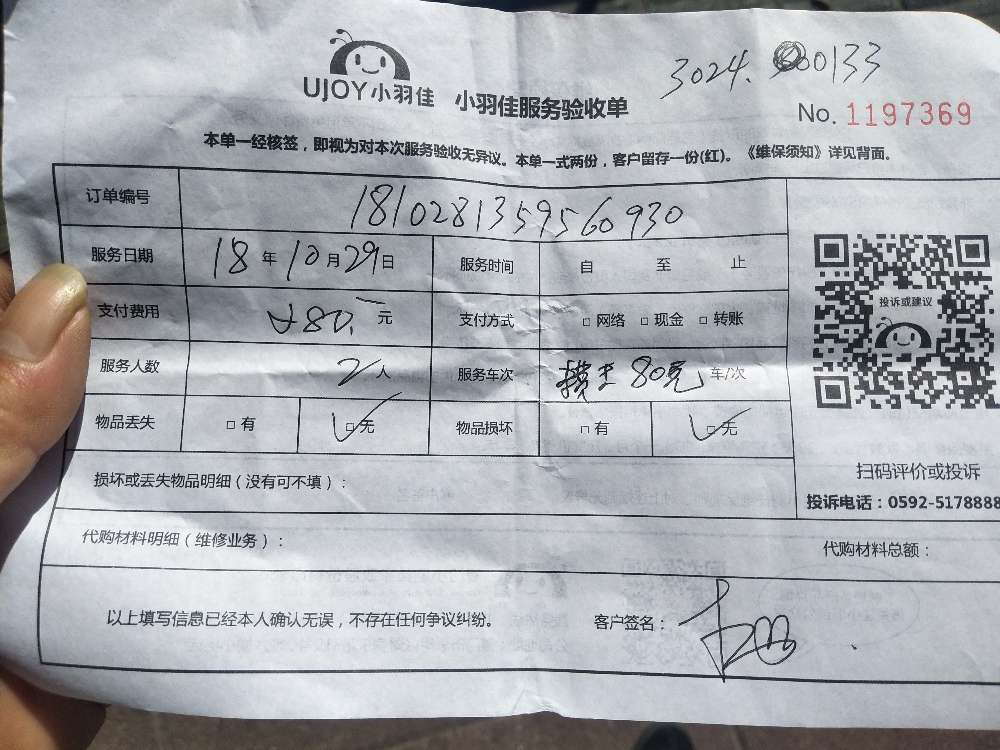 3024. 00133
UJOY小羽佳 小羽佳服务验收单
No. 1197369
本单一经核签，即视为对本次服务验收无异议。本单一式两份，客户留存一份(红)。《维保须知》详见背面。
订单编号 1810281359560930
服务日期 18年10月29日 服务时间 自 至 止
支付费用 ¥80. 元 支付方式 □网络 □现金 □转账
投诉或建议
服务人数 2人 服务车次 80元 车/次
物品丢失 □有 □无 物品损坏 □有 □无
扫码评价或投诉
损坏或丢失物品明细（没有可不填）：
投诉电话：0592-5178888
代购材料明细（维修业务）： 代购材料总额：
以上填写信息已经本人确认无误，不存在任何争议纠纷。 客户签名：